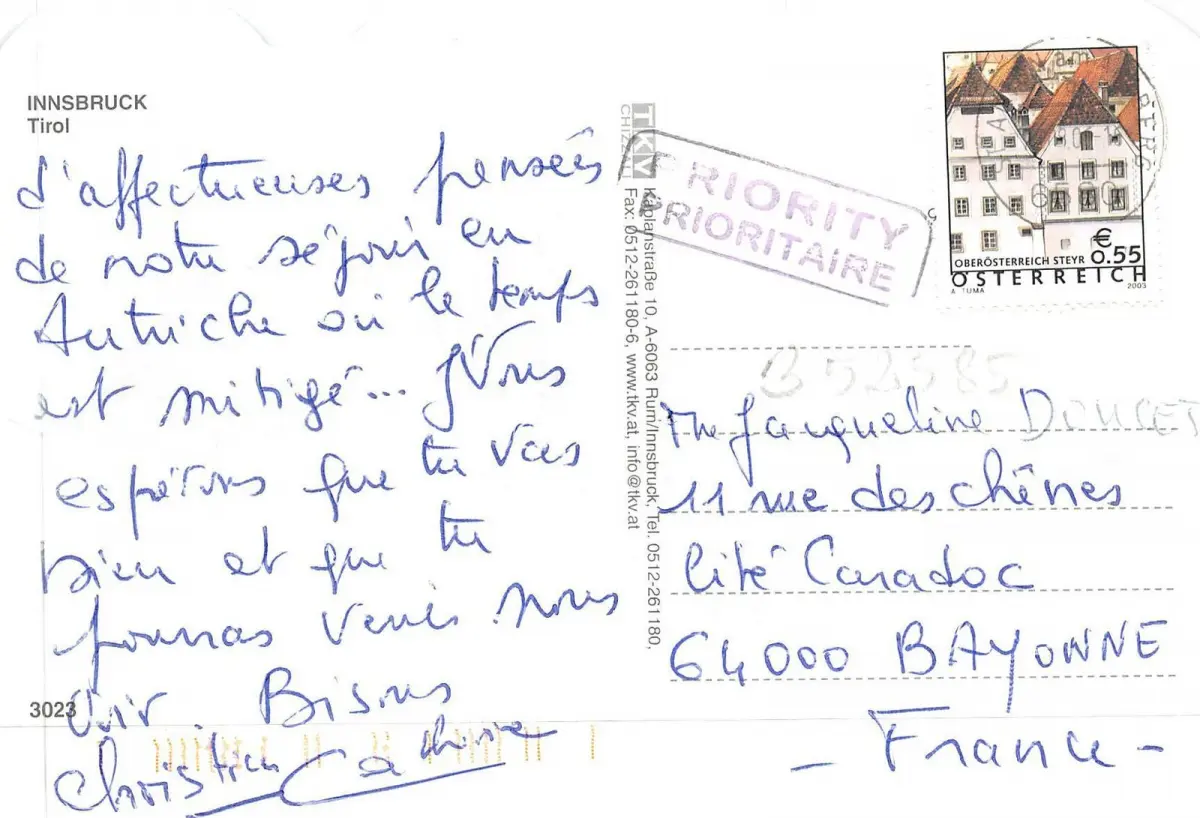 INNSBRUCK
Tirol
d'affectueuses pensées
de notre séjour en
Autriche où le temps
est mitigé... Nous
espérons que tu vas
bien et que tu
pourras venir nous
voir. Bisous
Christian
3023
TKV
Kaplanstraße 10, A-6063 Rum/Innsbruck, Tel. 0512-261180,
Fax: 0512-261180-6, www.tkv.at, info@tkv.at
PRIORITY
PRIORITAIRE
€
0.55
OBERÖSTERREICH STEYR
ÖSTERREICH
A. TUMA
2003
B 52385
Me Jacqueline DOUCET
11 rue des chênes
Cité Caradoc
64000 BAYONNE
- France -